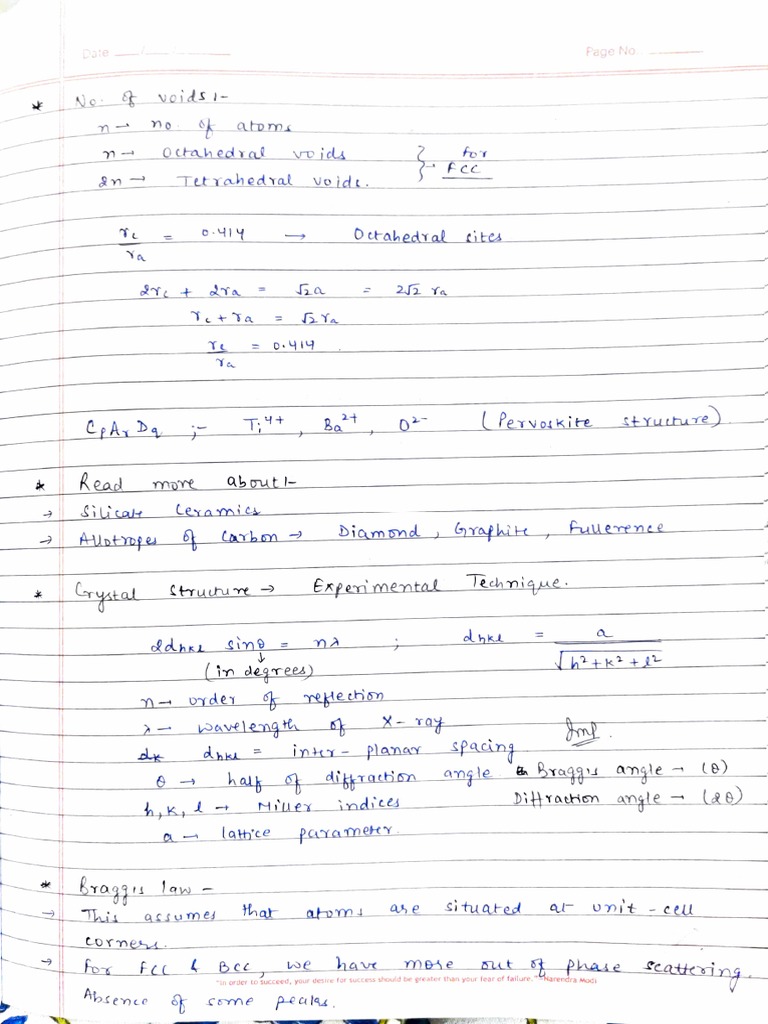 Date
Page No.
* No. of voids :-
n → no. of atoms
n → Octahedral voids
2n → Tetrahedral voids. } → for FCC
rc/ra = 0.414 → Octahedral sites
2rc + 2ra = √2a = 2√2 ra
rc + ra = √2 ra
rc/ra = 0.414
CpArDq ;- Ti⁴⁺, Ba²⁺, O²⁻ (Pervoskite structure)
* Read more about :-
→ Silicate Ceramics
→ Allotropes of Carbon → Diamond, Graphite, Fullerence
* Crystal Structure → Experimental Technique.
2dhkl sinθ = nλ ; dhkl = a/√h²+k²+l²
↓
(in degrees)
n → order of reflection
λ → wavelength of X-ray
dhkl = inter-planar spacing Imp.
θ → half of diffraction angle. Bragg's angle → (θ)
h, k, l → Miller indices Diffraction angle → (2θ)
a → lattice parameter.
* Bragg's law -
→ This assumes that atoms are situated at unit-cell
corners.
→ For FCC & BCC, we have more out of phase scattering.
"In order to succeed, your desire for success should be greater than your fear of failure." -Narendra Modi
Absence of some peaks.